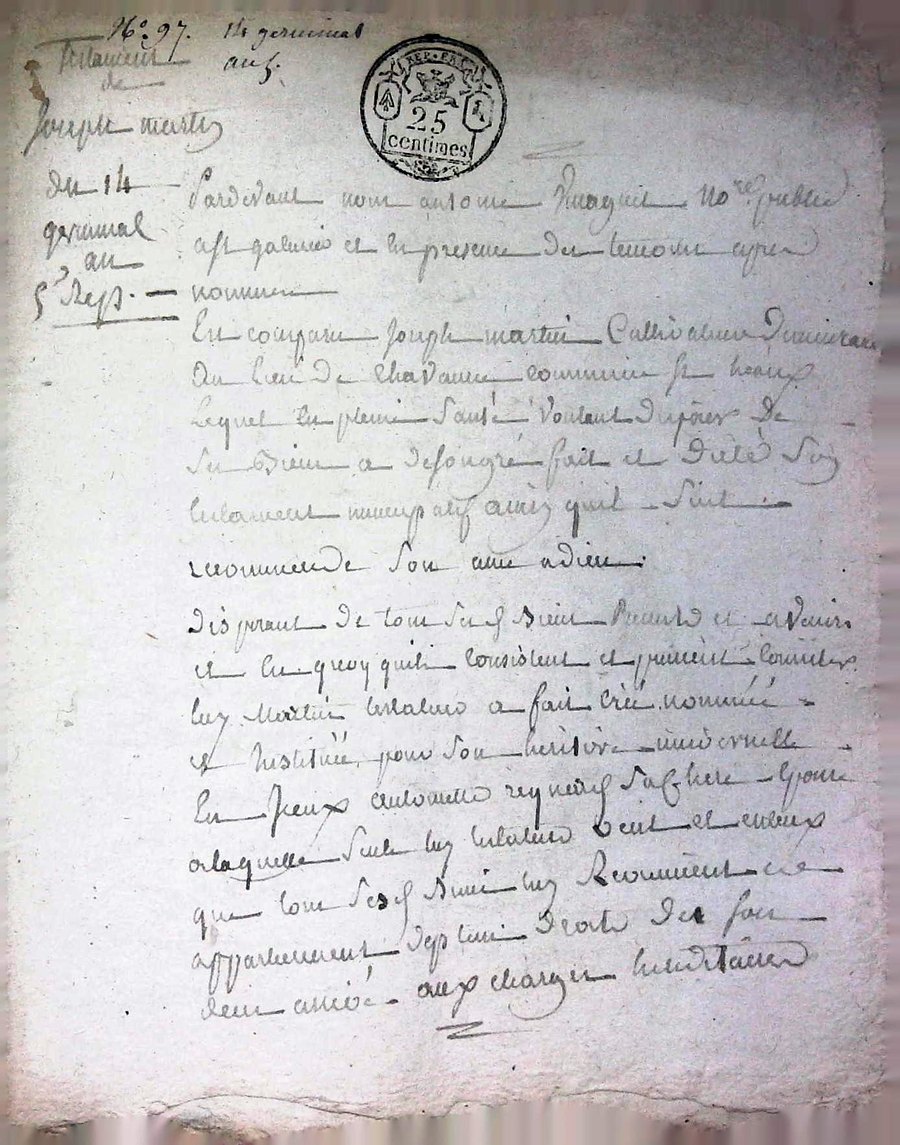 N.o 97. 14 germinal
an 5.
Testament
de
Joseph martin
du 14
germinal
an
5 Rep.
REP. FRA.
25
centimes
Pardevant nous antoine no.re public
a St galmier et en presence des temoins apres
nommes
En comparu Joseph martin Cultivateur Demeurant
Du lieu De Chavanne commune St heaux
Lequel En pleine Santé voulant disposer De
Ses Biens a desongré fait et Dicté Son
testament nuncupatif ainsy quil Suit
recommende Son ame adieu.
disposant De tous Ses Biens Presents et avenirs
et En quoy quils Consistent et puissent Consister
luy Martin testateur a fait Créé nommée
et Institüée pour Son heritiere universelle
En Jceux Sa Chere Epouse
alaquelle Seule luy testateur veut et entend
que tous Ses Biens luy Reviennent et
appartiennent deplein Droit Des Son
deces arrivé aux charges hereditaires